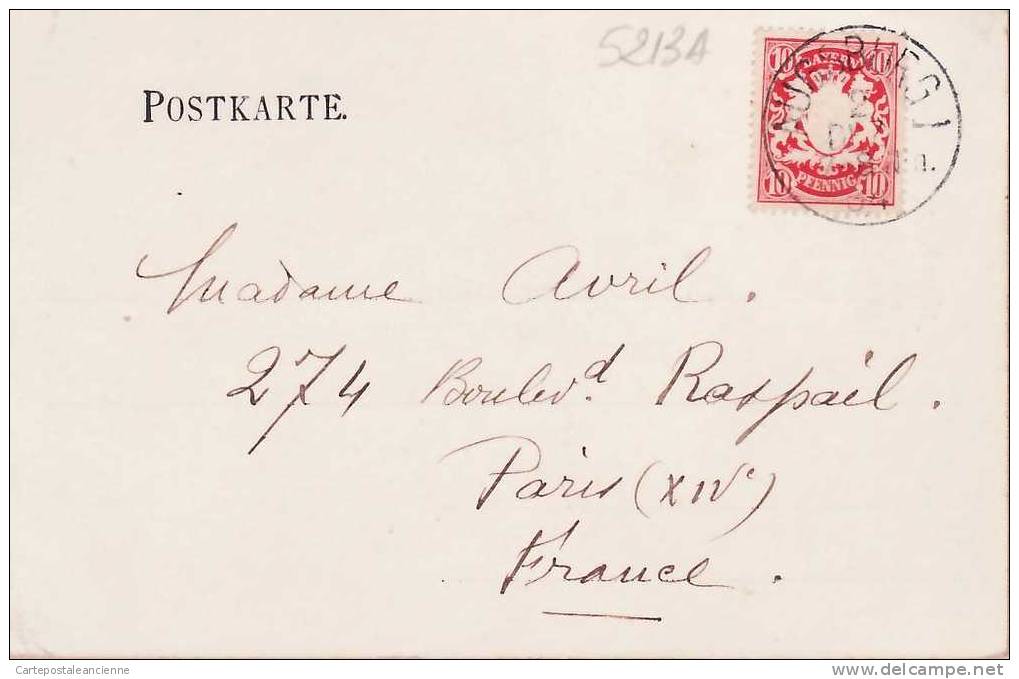 5213A
POSTKARTE.
10 BAYERN 10
10 PFENNIG 10
AUGSBURG 1
Madame Avril.
274 Boulev.d Raspail.
Paris (XIVe)
France.
Cartepostaleancienne
delcampe.net